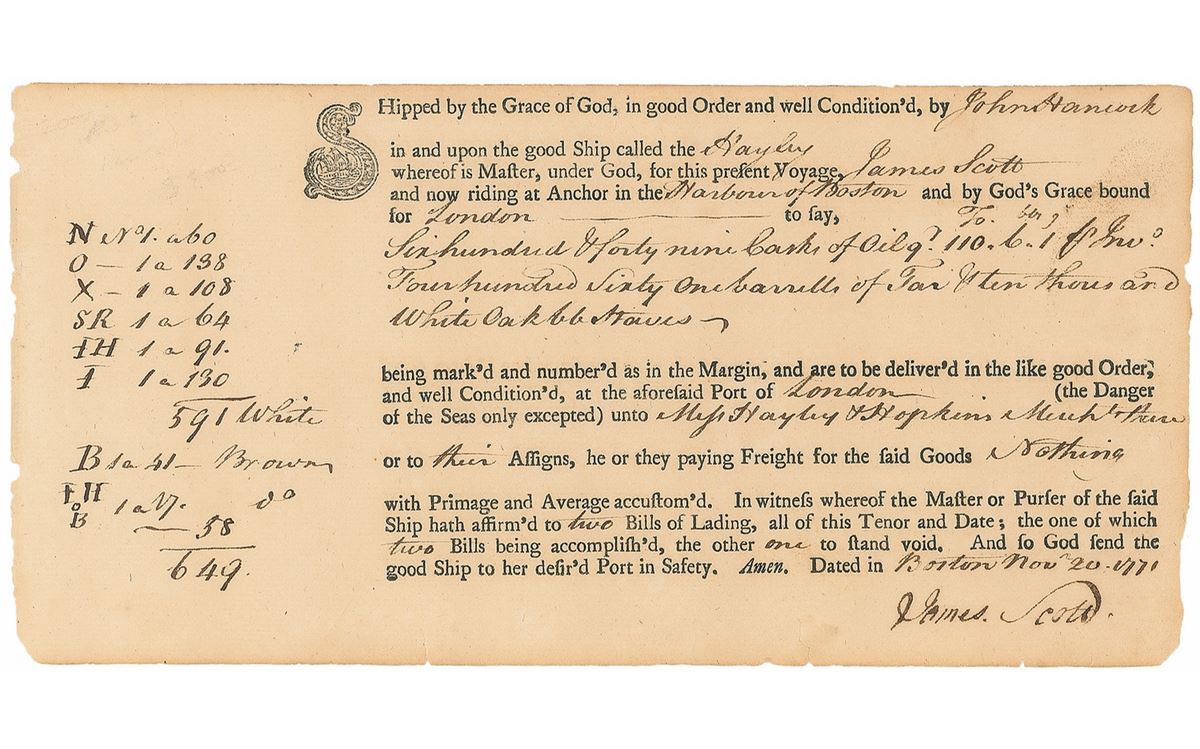 SHipped by the Grace of God, in good Order and well Condition'd, by John Hancock
in and upon the good Ship called the Hayley
whereof is Maſter, under God, for this preſent Voyage, James Scott
and now riding at Anchor in the Harbour of Boston and by God's Grace bound
for London to ſay,
Six hundred & forty nine Casks of Oil qt 110.6.1 pr Invo
Four hundred Sixty One barrells of Tar & ten thousand
White Oak bb Staves
being mark'd and number'd as in the Margin, and are to be deliver'd in the like good Order,
and well Condition'd, at the aforeſaid Port of London (the Danger
of the Seas only excepted) unto Meſs Hayley & Hopkins Mercht there
or to their Aſſigns, he or they paying Freight for the ſaid Goods Nothing
with Primage and Average accuſtom'd. In witneſs whereof the Maſter or Purſer of the ſaid
Ship hath affirm'd to two Bills of Lading, all of this Tenor and Date; the one of which
two Bills being accompliſh'd, the other one to ſtand void. And ſo God ſend the
good Ship to her deſir'd Port in Safety. Amen. Dated in Boston Novr 20. 1771
James. Scott.
N No 1. a 60
O – 1 a 138
X – 1 a 108
SR 1 a 64
IH 1 a 91.
I 1 a 130
591 White
B 1 a 41 – Brown
IH
o
B 1 a 17. do
58
649.